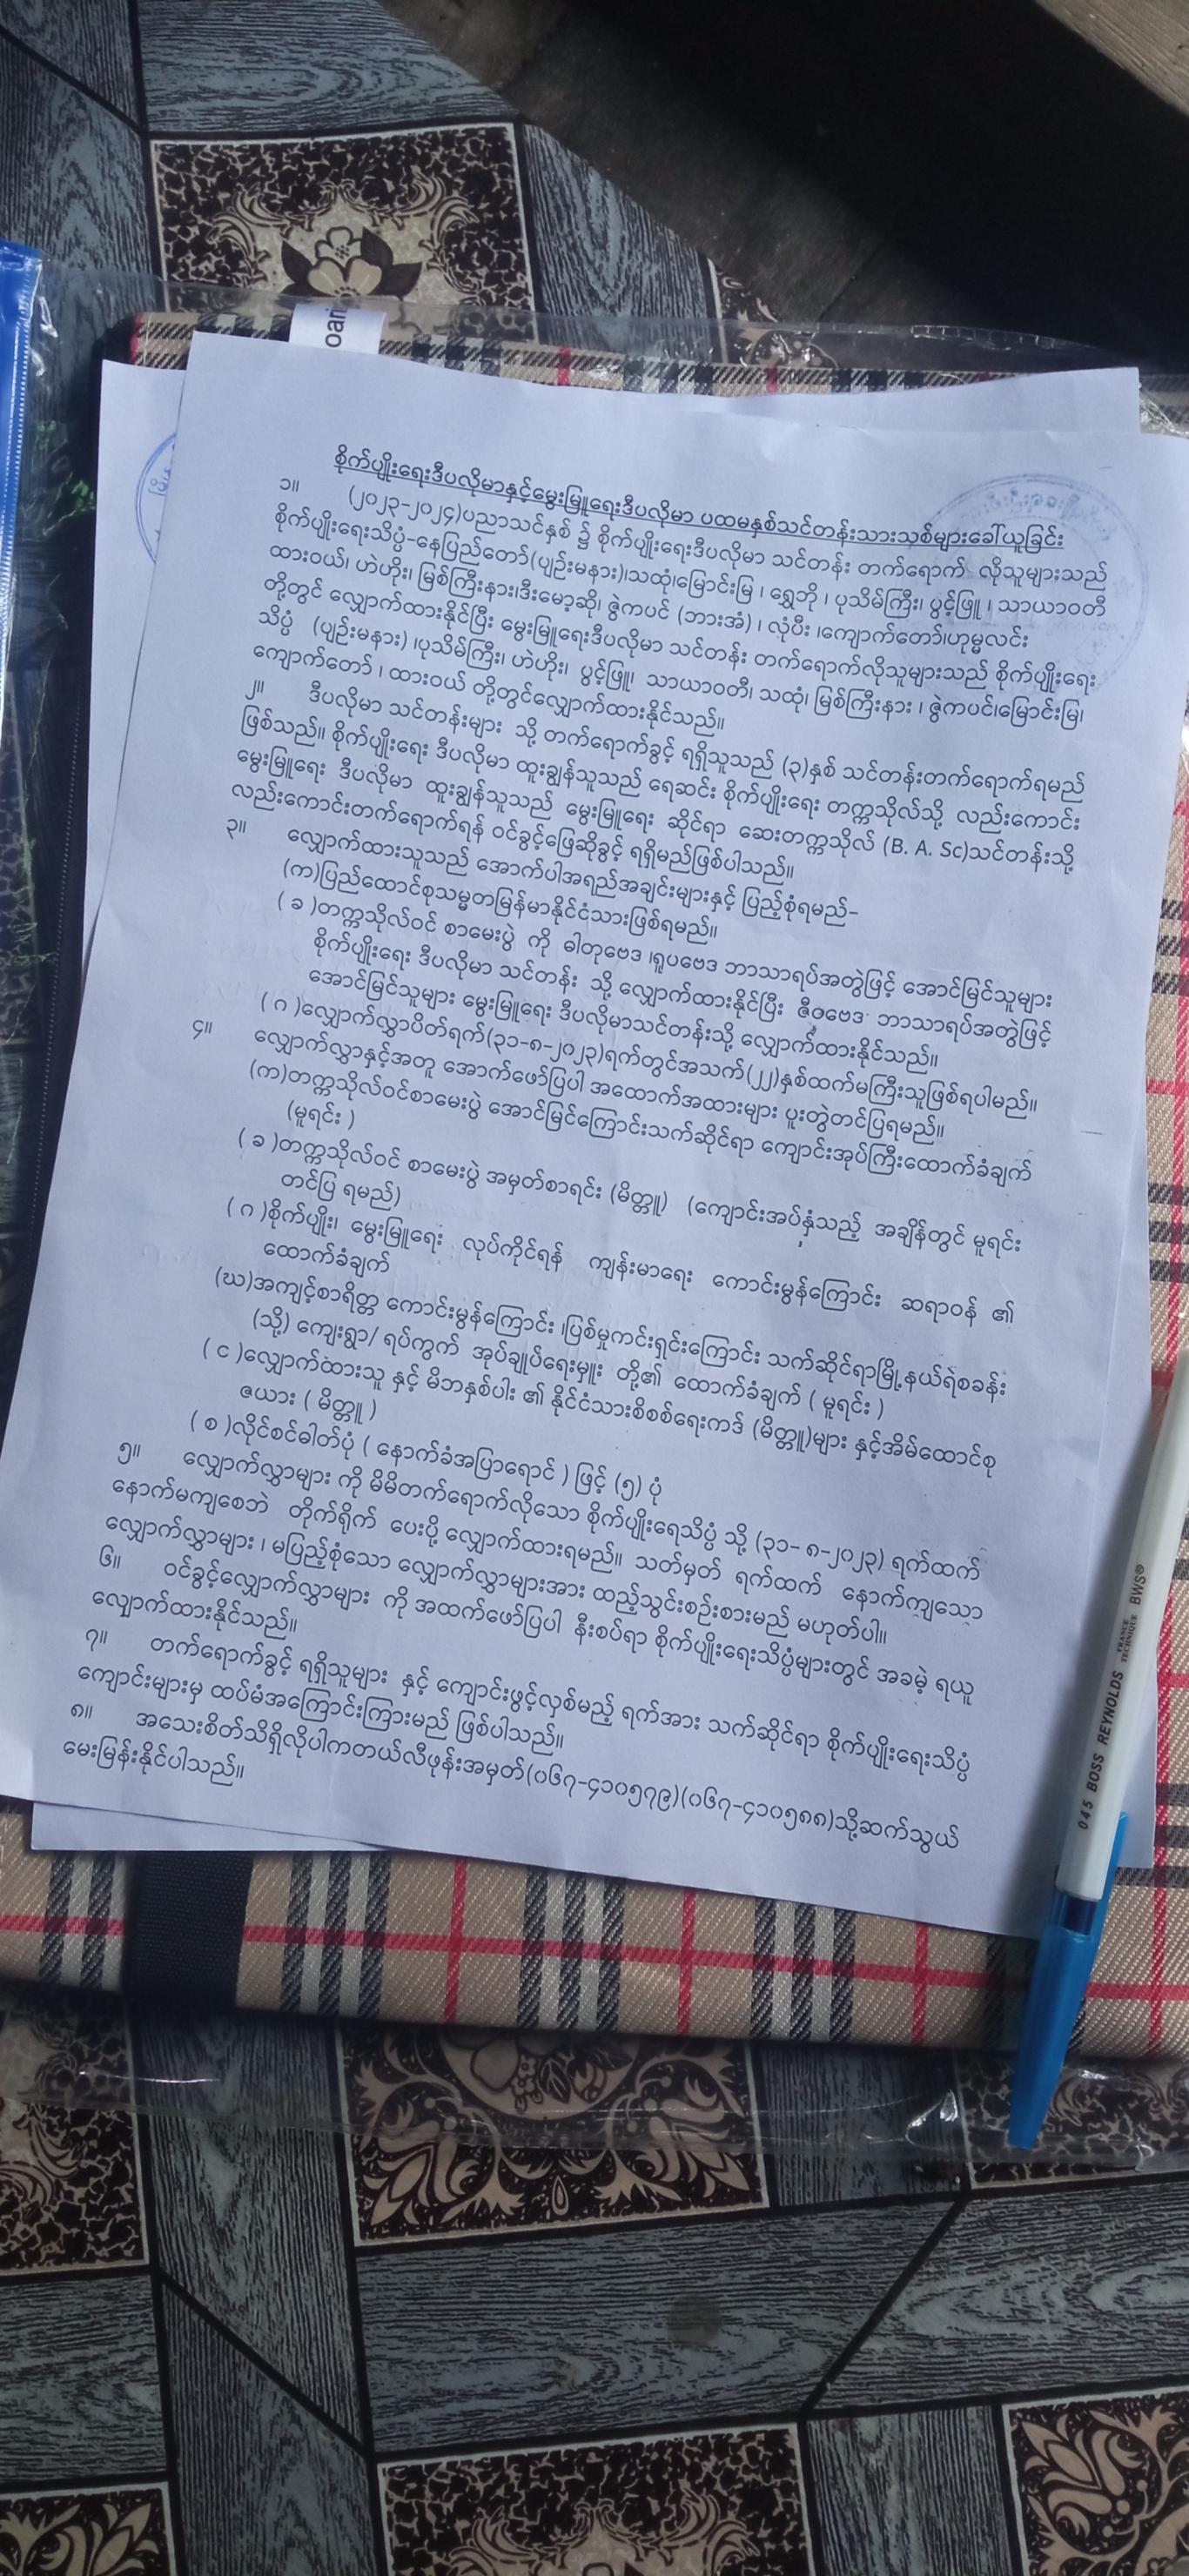 oari
စိုက်ပျိုးရေးဒီပလိုမာနှင့်မွေးမြူရေးဒီပလိုမာ ပထမနှစ်သင်တန်းသားသစ်များခေါ်ယူခြင်း
၁။ (၂၀၂၃-၂၀၂၄)ပညာသင်နှစ် ၌ စိုက်ပျိုးရေးဒီပလိုမာ သင်တန်း တက်ရောက် လိုသူများသည်
စိုက်ပျိုးရေးသိပ္ပံ-နေပြည်တော်(ပျဉ်းမနား)၊သထုံ၊မြောင်းမြ ၊ ရွှေဘို ၊ ပုသိမ်ကြီး၊ ပွင့်ဖြူ ၊ သာယာဝတီ
ထားဝယ်၊ ဟဲဟိုး၊ မြစ်ကြီးနား၊ဒီးမော့ဆို၊ ဇွဲကပင် (ဘားအံ) ၊ လုံပီး ၊ကျောက်တော်၊ဟုမ္မလင်း
တို့တွင် လျှောက်ထားနိုင်ပြီး မွေးမြူရေးဒီပလိုမာ သင်တန်း တက်ရောက်လိုသူများသည် စိုက်ပျိုးရေး
သိပ္ပံ (ပျဉ်းမနား) ၊ပုသိမ်ကြီး၊ ဟဲဟိုး၊ ပွင့်ဖြူ၊ သာယာဝတီ၊ သထုံ၊ မြစ်ကြီးနား ၊ ဇွဲကပင်၊မြောင်းမြ၊
ကျောက်တော် ၊ ထားဝယ် တို့တွင်လျှောက်ထားနိုင်သည်။
၂။ ဒီပလိုမာ သင်တန်းများ သို့ တက်ရောက်ခွင့် ရရှိသူသည် (၃)နှစ် သင်တန်းတက်ရောက်ရမည်
ဖြစ်သည်။ စိုက်ပျိုးရေး ဒီပလိုမာ ထူးချွန်သူသည် ရေဆင်း စိုက်ပျိုးရေး တက္ကသိုလ်သို့ လည်းကောင်း
မွေးမြူရေး ဒီပလိုမာ ထူးချွန်သူသည် မွေးမြူရေး ဆိုင်ရာ ဆေးတက္ကသိုလ် (B. A. Sc)သင်တန်းသို့
လည်းကောင်းတက်ရောက်ရန် ဝင်ခွင့်ဖြေဆိုခွင့် ရရှိမည်ဖြစ်ပါသည်။
၃။ လျှောက်ထားသူသည် အောက်ပါအရည်အချင်းများနှင့် ပြည့်စုံရမည်-
(က)ပြည်ထောင်စုသမ္မတမြန်မာနိုင်ငံသားဖြစ်ရမည်။
( ခ )တက္ကသိုလ်ဝင် စာမေးပွဲ ကို ဓါတုဗေဒ ၊ရူပဗေဒ ဘာသာရပ်အတွဲဖြင့် အောင်မြင်သူများ
စိုက်ပျိုးရေး ဒီပလိုမာ သင်တန်း သို့ လျှောက်ထားနိုင်ပြီး ဇီဝဗေဒ ဘာသာရပ်အတွဲဖြင့်
အောင်မြင်သူများ မွေးမြူရေး ဒီပလိုမာသင်တန်းသို့ လျှောက်ထားနိုင်သည်။
( ဂ )လျှောက်လွှာပိတ်ရက်(၃၁-၈-၂၀၂၃)ရက်တွင်အသက်(၂၂)နှစ်ထက်မကြီးသူဖြစ်ရပါမည်။
၄။ လျှောက်လွှာနှင့်အတူ အောက်ဖော်ပြပါ အထောက်အထားများ ပူးတွဲတင်ပြရမည်။
(က)တက္ကသိုလ်ဝင်စာမေးပွဲ အောင်မြင်ကြောင်းသက်ဆိုင်ရာ ကျောင်းအုပ်ကြီးထောက်ခံချက်
(မူရင်း )
( ခ )တက္ကသိုလ်ဝင် စာမေးပွဲ အမှတ်စာရင်း (မိတ္တူ) (ကျောင်းအပ်နှံသည့် အချိန်တွင် မူရင်း
တင်ပြ ရမည်)
( ဂ )စိုက်ပျိုး၊ မွေးမြူရေး လုပ်ကိုင်ရန် ကျန်းမာရေး ကောင်းမွန်ကြောင်း ဆရာဝန် ၏
ထောက်ခံချက်
(ဃ)အကျင့်စာရိတ္တ ကောင်းမွန်ကြောင်း ၊ပြစ်မှုကင်းရှင်းကြောင်း သက်ဆိုင်ရာမြို့နယ်ရဲစခန်း
(သို့) ကျေးရွာ/ ရပ်ကွက် အုပ်ချုပ်ရေးမှူး တို့၏ ထောက်ခံချက် ( မူရင်း )
( င )လျှောက်ထားသူ နှင့် မိဘနှစ်ပါး ၏ နိုင်ငံသားစိစစ်ရေးကဒ် (မိတ္တူ)များ နှင့်အိမ်ထောင်စု
ဇယား ( မိတ္တူ )
( စ )လိုင်စင်ဓါတ်ပုံ ( နောက်ခံအပြာရောင် ) ဖြင့် (၅) ပုံ
၅။ လျှောက်လွှာများ ကို မိမိတက်ရောက်လိုသော စိုက်ပျိုးရေသိပ္ပံ သို့ (၃၁- ၈-၂၀၂၃) ရက်ထက်
နောက်မကျစေဘဲ တိုက်ရိုက် ပေးပို့ လျှောက်ထားရမည်။ သတ်မှတ် ရက်ထက် နောက်ကျသော
လျှောက်လွှာများ ၊ မပြည့်စုံသော လျှောက်လွှာများအား ထည့်သွင်းစဉ်းစားမည် မဟုတ်ပါ။
၆။ ဝင်ခွင့်လျှောက်လွှာများ ကို အထက်ဖော်ပြပါ နီးစပ်ရာ စိုက်ပျိုးရေးသိပ္ပံများတွင် အခမဲ့ ရယူ
လျှောက်ထားနိုင်သည်။
၇။ တက်ရောက်ခွင့် ရရှိသူများ နှင့် ကျောင်းဖွင့်လှစ်မည့် ရက်အား သက်ဆိုင်ရာ စိုက်ပျိုးရေးသိပ္ပံ
ကျောင်းများမှ ထပ်မံအကြောင်းကြားမည် ဖြစ်ပါသည်။
၈။ အသေးစိတ်သိရှိလိုပါကတယ်လီဖုန်းအမှတ်(၀၆၇-၄၁၀၅၇၉)(၀၆၇-၄၁၀၅၈၈)သို့ဆက်သွယ်
မေးမြန်းနိုင်ပါသည်။
045 BOSS REYNOLDS FRANCE TECHNIQUE BWS®